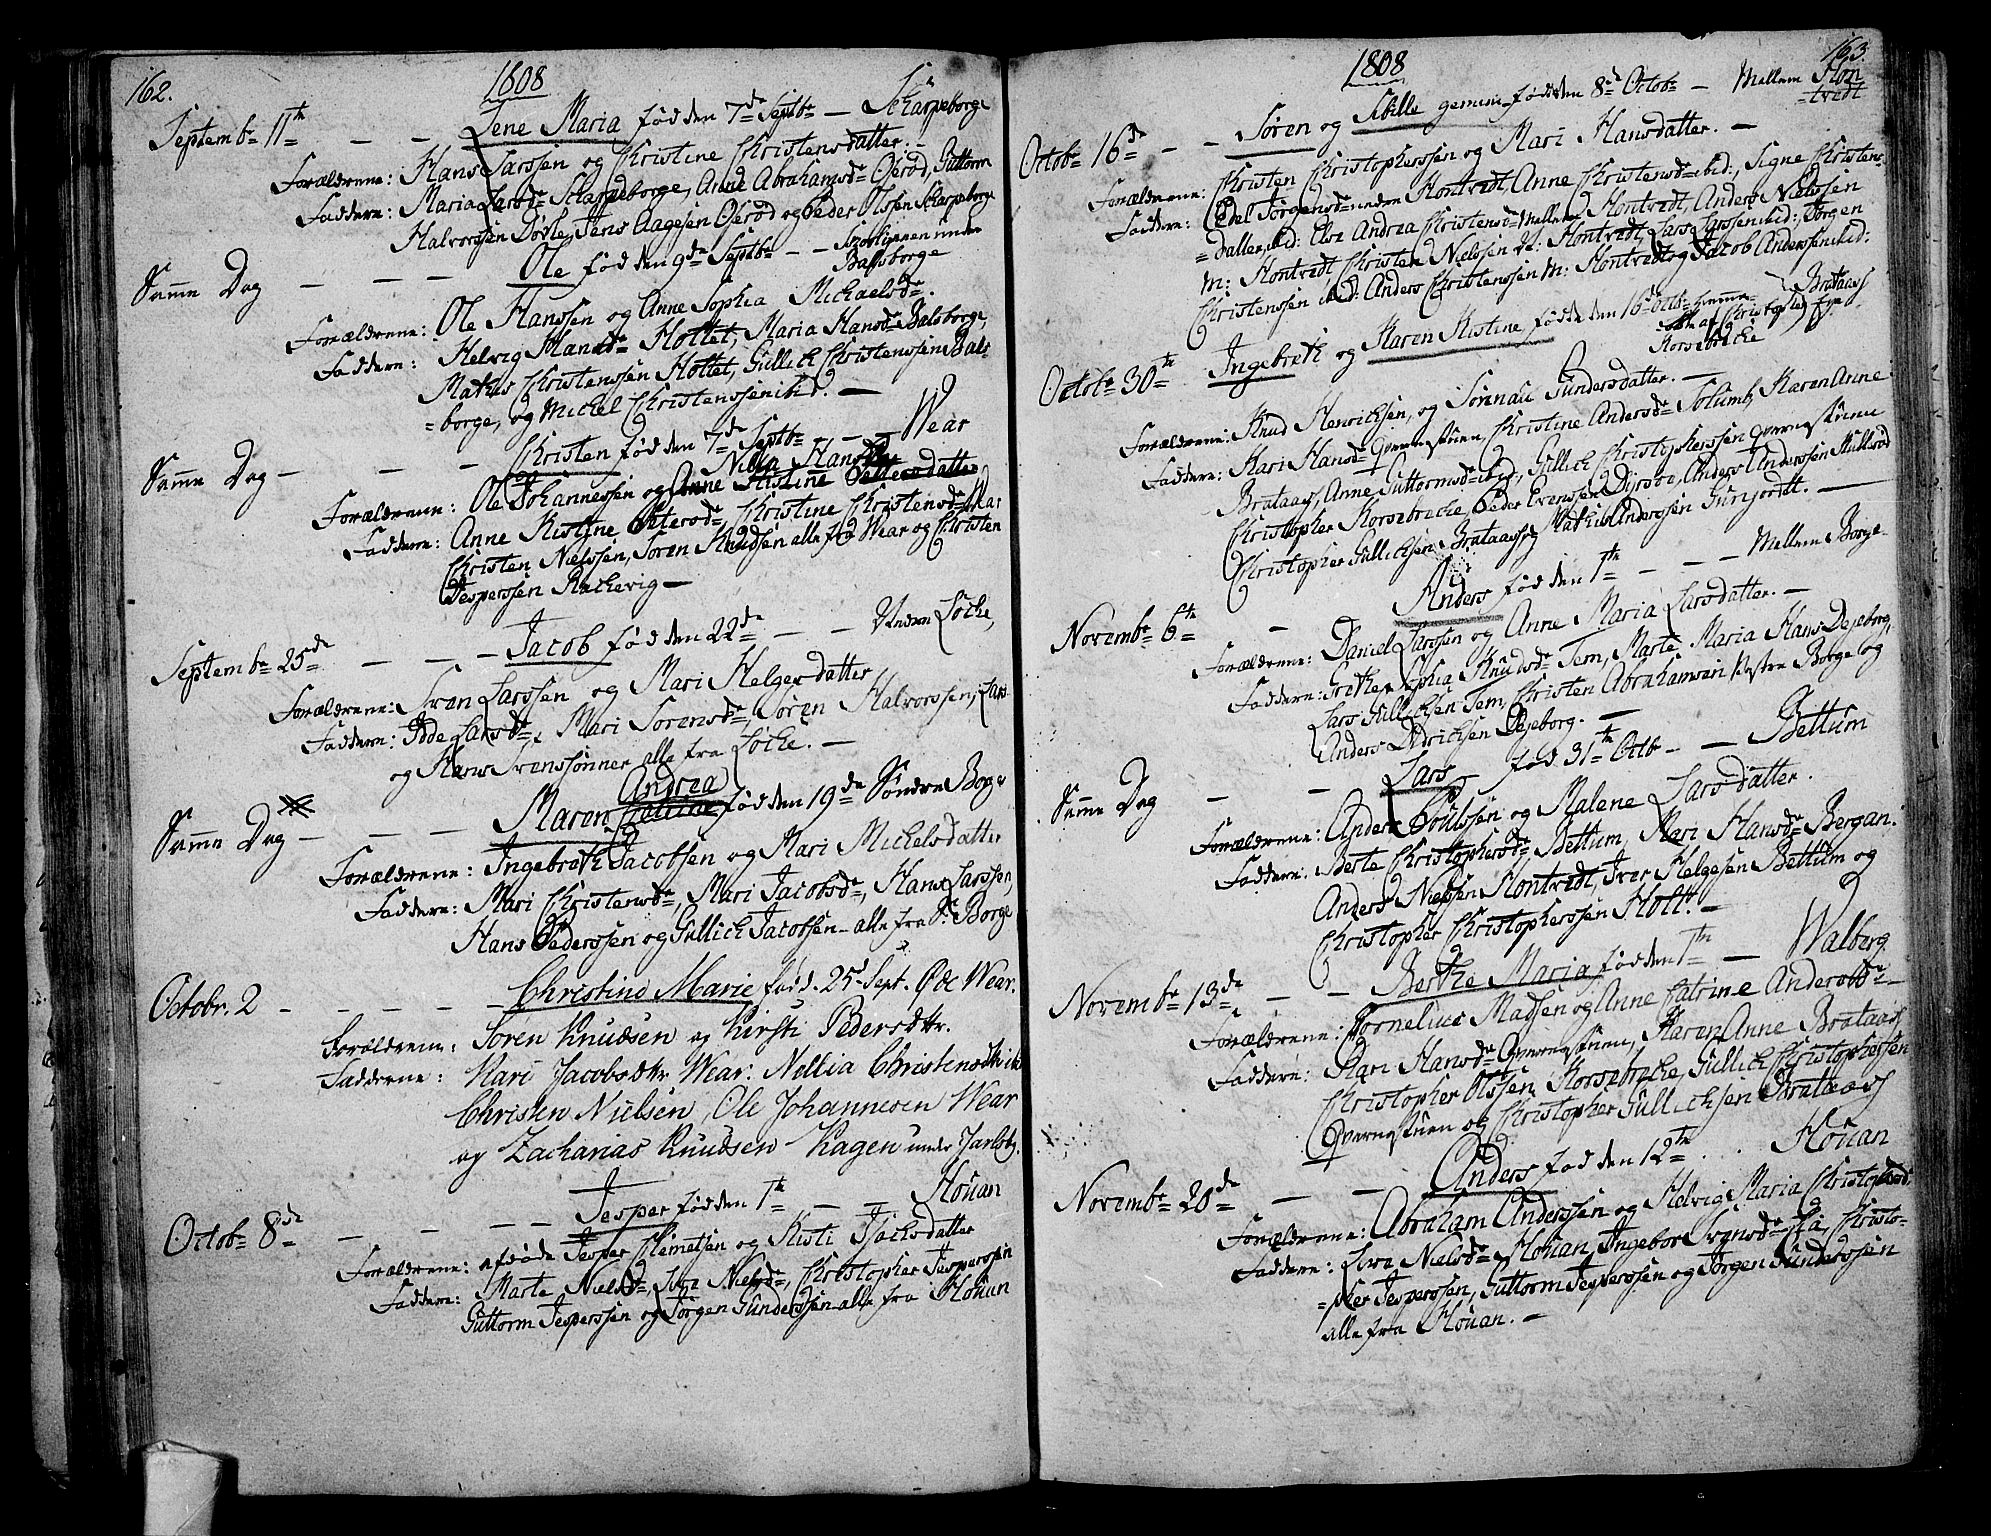 162.
1808
Septembr 11th — — Lene Maria fød den 7de Septbr — Skarpeborge
Forældrene: Hans Larssen og Christine Christensdatter. —
Faddere: Maria Larsdr Skarpeborge, Anne Abrahamsdr Oserød, Guttorm
Halvorssen Døvle, Jens Aagesen Oserød og Peder Olssen Skarpeborge
Samme Dag — — — Ole fød den 9de Septbr — — under
Balsborge
Forældrene: Ole Hanssen og Anne Sophia Michaelsdr.
Faddere: Helvig Hansdr Holtet, Maria Hansdr Balsborge,
Mathis Christenssen Holtet, Gullich Christenssen Bals-
=borge, og Michel Christenssen ibid. —
Samme Dag — — — Christen fød den 7de Septbr — — Wear
Nilla Hansdr
Forældrene: Ole Johannessen og Anne Kistine Pettersdatter
Faddere: Anne Kistine Petersdr, Christine Christensdr
Christen Nielssen, Søren Knudsen alle fra Wear og Christen
Jesperssen Rackevig —
Septembr 25de — — — Jacob fød den 22de — — Undern Løcke,
Forældrene: Sven Larssen og Mari Helgesdatter
Faddere: Larsdr, Mari Sørensdr, Søren Halvorssen, Lars
og Hans Svenssønner alle fra Løcke. —
Andrea
Samme Dag — — — Maren fød den 19de Søndre Borge
Forældrene: Ingebreth Jacobsen og Mari Michelsdatter
Faddere: Mari Christensdr, Mari Jacobsdr, Hans Larssen,
Hans Pederssen og Gullich Jacobsen — alle fra S. Borge
Octobr. 2 — — — — Christine Marie fød d. 25d Sept. Øde Wear.
Forældrene: Søren Knudsen og Kirsti Pedersdtr.
Fadderne: Mari Jacobsdtr Wear. Nillia Christensdtr ibd
Christen Nielsen, Ole Johannesen Wear
og Zacharias Knudsen Hagen under Jarlsbg.
Octobr 8de — — — Jesper fød den 1th — — Høuan
Forældrene: afdøde Jesper Clemetsen og Kisti Isachsdatter
Faddere: Marte Nielsdr, Siri Nielsdr, Christopher Jesperssen
Guttorm Jesperssen og Jørgen Gunderssen — alle fra Høuan
163.
1808
Octobr 16de — — Søren og Sibille gemini fødde den 8de Octobr — Mellem Hon
=tvedt
Forældrene: Christen Christopherssen og Mari Hansdatter. —
Faddere: Edel Jørgensdr nedern Hontvedt, Anne Christensdr ibid:, Signe Christens-
=datter, ibid: Else Andrea Christensdr Mellem Hontvedt, Anders Nielssen
M: Hontvedt, Christen Nielssen N: Hontvedt, Lars Larssen ibid:, Jørgen
Christenssen ibid: Anders Christenssen M: Hontvedt og Jacob Anderssen ibid:
Octobr 30th Ingebreth og Karen Kistine fødde den 16de Octbr — Brataas
Korsebrecke
Forældrene: Knud Henrichsen, og Sørenau Gundersdatter. —
Faddere: Kari Hansdr Qvernestuen, Christine Andersdr Solum, Karen Anne
Brataas, Anne Guttormsdr ibid, Gullich Christopherssen Qvernestuen
Christopher Korsebrecke, Peder Evenssen Dyrsøe, Anders Anderssen Skulsrød
Christopher Gullichsen Brataas og Mathias Anderssen Gunjordtt. —
Novembr 6th — Anders fød den 1th — — Mellem Borge
Forældrene: Daniel Larssen og Anne Maria Larsdatter. —
Faddere: Grethe Sophia Knudsdr Tem, Marte Maria Hansd Dejeborg,
Lars Gullichsen Tem, Christen Abrahamsen Vestre Borge og
Anders Didrichsen Dejeborg. —
Samme Dag — — Lars fød 31th Octbr — — Bettum
Forældrene: Anders Poulssen og Malene Larsdatter.
Faddere: Berte Christophersdr Bettum, Mari Hansdr Bergan.
Anders Nielssen Hontvedt, Iver Helgesen Bettum og
Christopher Christopherssen Holt. —
Novembr 13de — — Berthe Maria fød den 1th — Walberg
Forældrene: Cornelius Madsen og Anne Catrine Andersdr —
Faddere: Mari Hansdr Qvernestuen, Karen Anne Brataas,
Christopher Olssen Korsebrecke, Gullich Christopherssen
Qvernestuen og Christopher Gullichsen Brataas
Novembr 20de — — Anders fød den 12th . . Høuan
Forældrene: Abraham Anderssen og Helvig Maria Christophersd.
Faddere: Siri Nielsdr Høuan, Ingebor Svensdr ibid, Christo-
=pher Jesperssen, Guttorm Jesperssen og Jørgen Gunderssen
alle fra Høuan. —